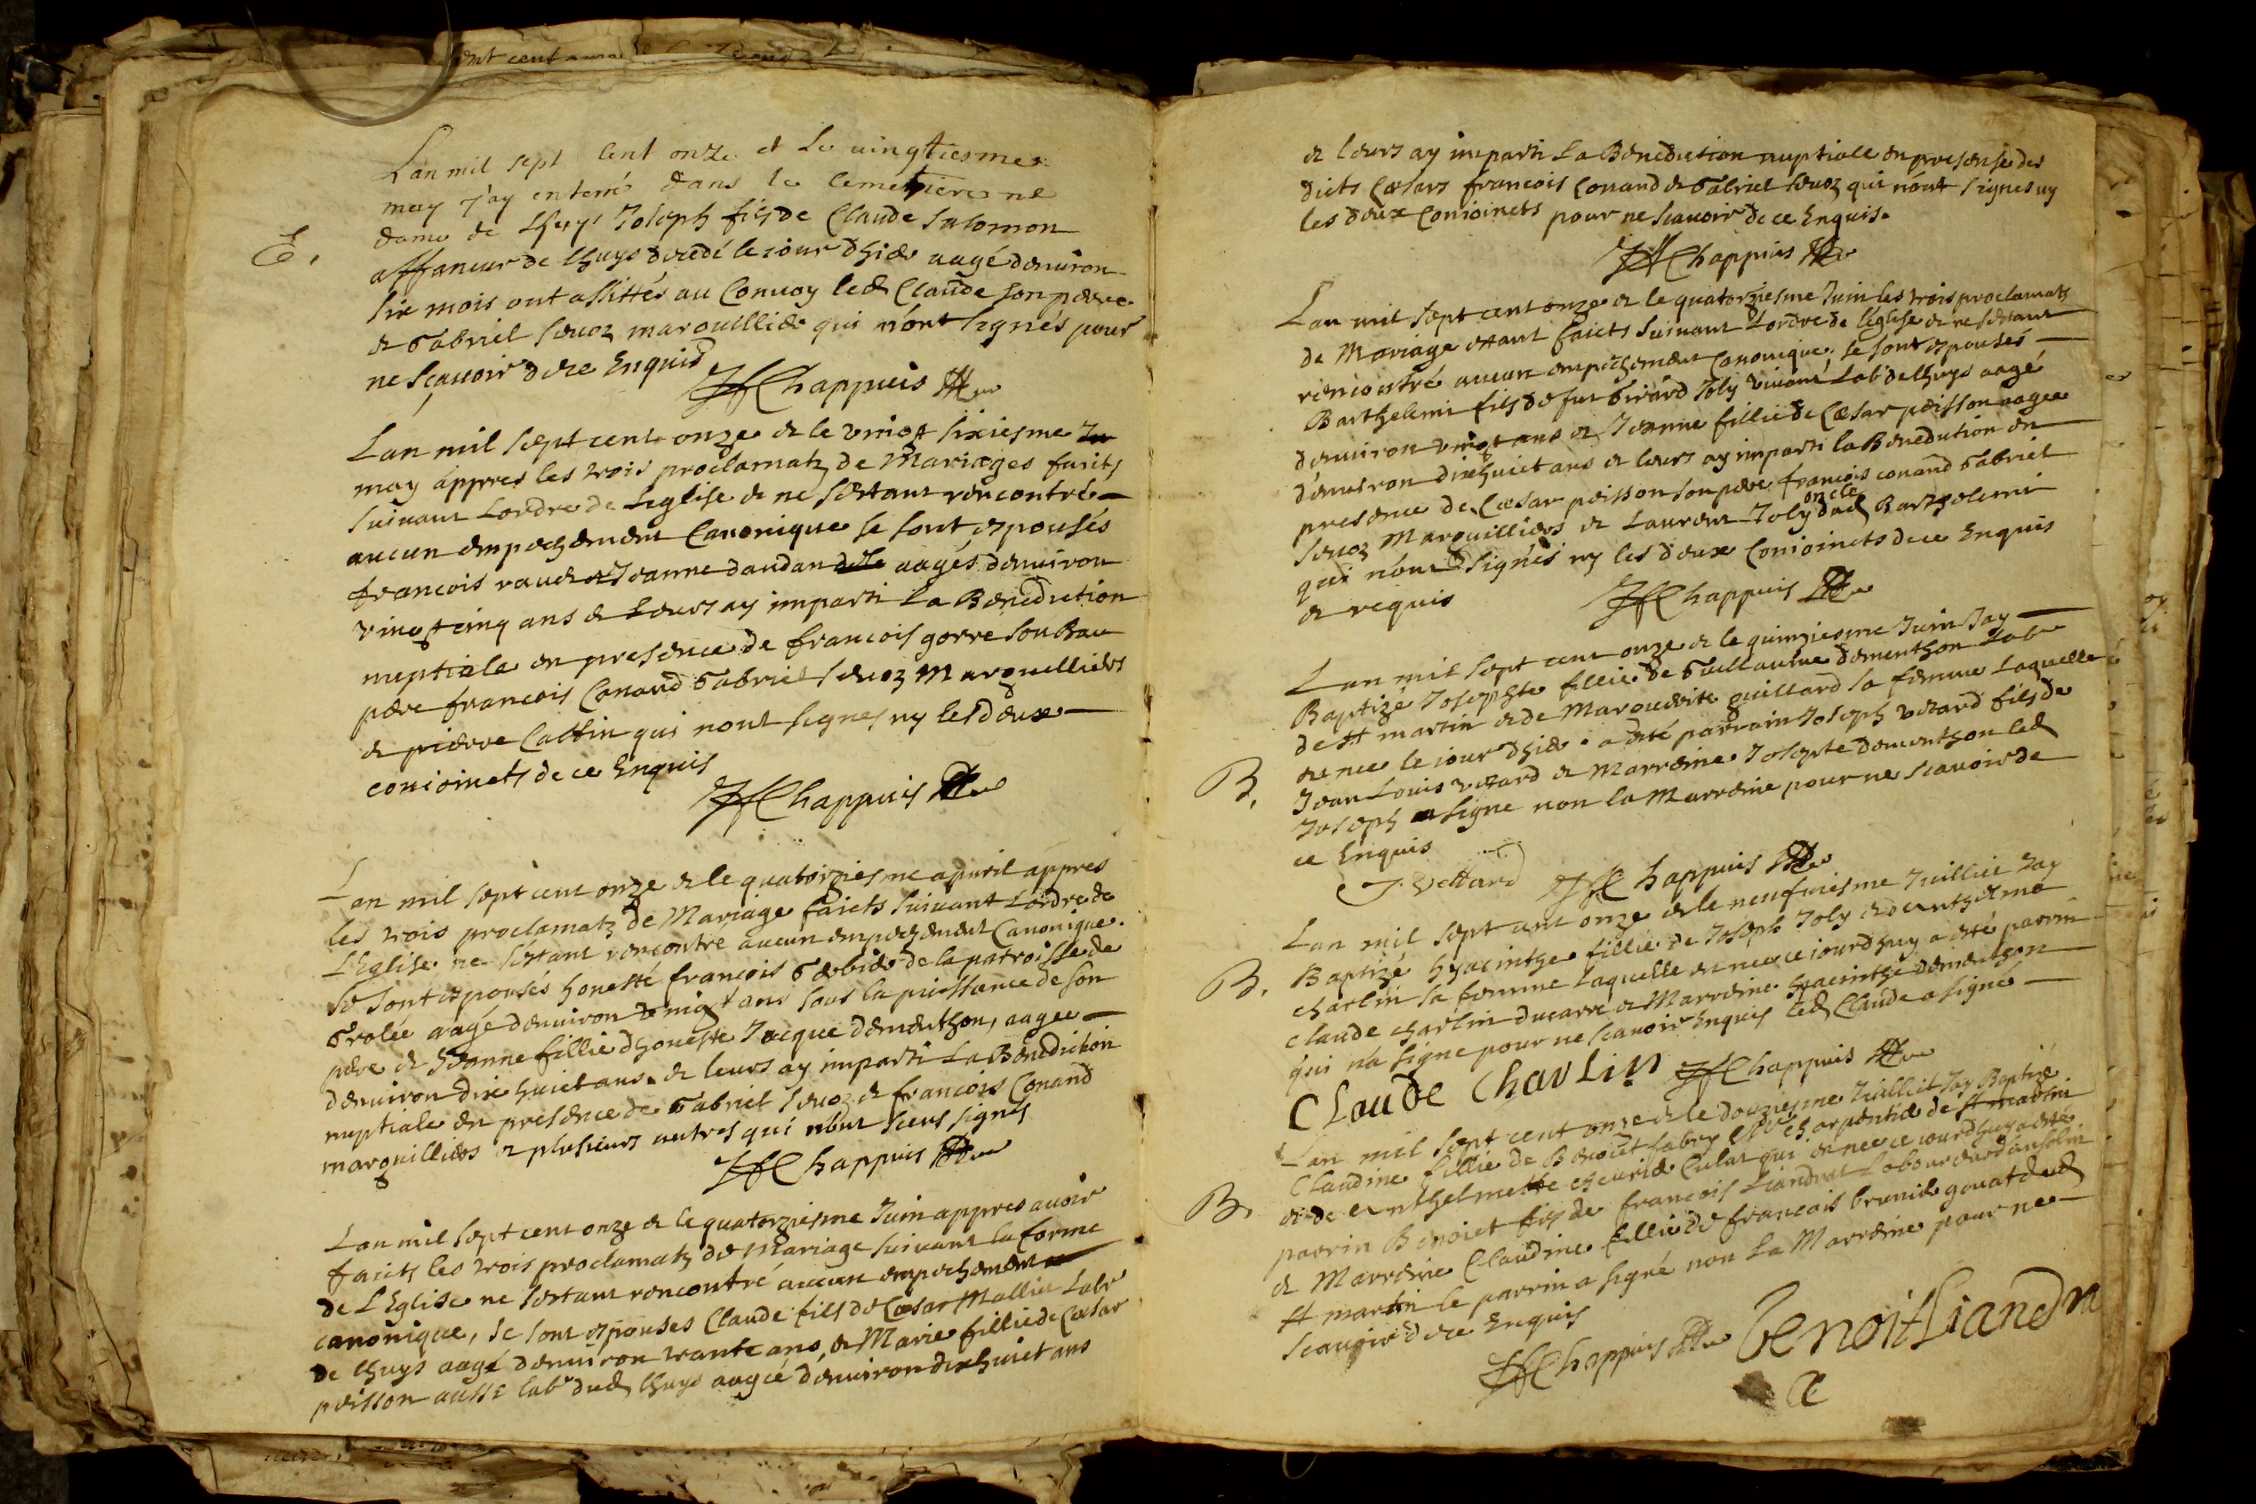 Lan mil sept cent onze et le vingtiesme
may j'ay enterré dans le cemetiere nre
dame de Lhuys Joseph fils de Claude Salomon
E.
affaneur de lhuys decedé le iour dhier aagé denviron
six mois ont assistés au Convoy led Claude son pere
et Gabriel Sevoz marguillier qui n'ont signés pour
ne scavoir de ce Enquis
Chappuis
Lan mil sept cent onze et le vingt sixiesme
may appres les trois proclamatz de Mariages faicts
suivant Lordre de Leglise et ne sestant rencontré
aucun empechement Canonique se sont espousés
francois et Jeanne dandan aagés denviron
vingt cinq ans et Leurs ay imparti La Benediction
nuptiale en presence de francois gorre son Beau
pere francois Conand Gabriel Sevoz Marguilliers
et pierre Cattin qui n'ont signes ny les deux
conioincts de ce Enquis
Chappuis
Lan mil sept cent onze et le quatorziesme apvril appres
les trois proclamatz de Mariage faicts suivant Lordre de
L'Eglise ne sestant rencontré aucun empechement Canonique
se sont espousés honeste francois de la parroisse de
Grolée aagé denviron vingt ans sous la puissance de son
pere et Jeanne fillie dhoneste Jacque dementhon, aagee
denviron dix huict ans et leurs ay imparti La Benediction
nuptiale en presence de Gabriel Sevoz et francois Conand
marguilliers et plusieurs autres qui n'ont sceus signés
Chappuis
Lan mil sept cent onze et le quatorziesme Juin appres avoir
faicts les trois proclamatz de Mariage suivant la forme
de L'Eglise ne sestant rencontré aucun empechement
canonique, se sont espouses Claude fils de Cæsar Mallin Labr
de lhuys aagé denviron trante ans, et Marie fillie de Cæsar
poisson aussi labr dud lhuys aagée denviron dix huict ans
et leurs ay imparti La Benediction nuptiale en presense des
dicts Cæsars francois Conand et Gabriel Sevoz qui n'ont signes ny
les deux Conioincts pour ne scavoir de ce Enquis.
Chappuis
Lan mil sept cent onze et le quatorziesme Juin les trois proclamatz
de Mariage estant faicts suivant Lordre de leglise et ne sestant
rencontré aucun empechement Canonique, se sont espousés
Barthelemi fils de feu Girard Joly vivant Labr de lhuys aagé
denviron vingt ans et Jeanne fillie de Cæsar poisson aagee
denviron dixhuict ans et leurs ay imparti la Benediction en
presence de Cæsar poisson son pere francois conand Gabriel
Sevoz Marguilliers et Laurent Joly oncle dud Barthelemi
qui n'ont signés ny les deux Conioincts de ce Enquis
et requis
Chappuis
Lan mil sept cent onze et le quinziesme Juin Jay
Baptizé Josephte fillie de Guillaume dementhon Labr
de st martin et de Marguerite guillard sa femme Laquelle
B.
est nee le iour dhier a eté parrain Joseph vetard fils de
Jean Louis vetard et Marreine Josepte dementhon led
Joseph a signe non la Marreine pour ne scavoir de
ce Enquis
J. Vettard Chappuis
Lan mil sept cent onze et le neufviesme Juillie Jay
B.
Baptizé hyacinthe fillie de Joseph Joly et de enthelme
charlin sa femme Laquelle est nee ce iourdhuy a eté parrin
claude charlin ducarre et Marreine hyacinthe dementhon
qui n'a signe pour ne scavoir Enquis led Claude a signé
CLaude CharLin Chappuis
Lan mil sept cent onze et le douziesme Juilliet Jay Baptizé
Claudine fillie de Benoit Labey charpentier de st martin
B.
et de enthelmette Culat qui est nee ce iourdhuy a eté
parrin Benoict fils de francois Liandrat Labour
et Marreine Claudine fillie de francois brunier gouat dud
st martin le parrin a signé non La Marreine pour ne
scavoir de ce Enquis
Chappuis Benoit Liandra